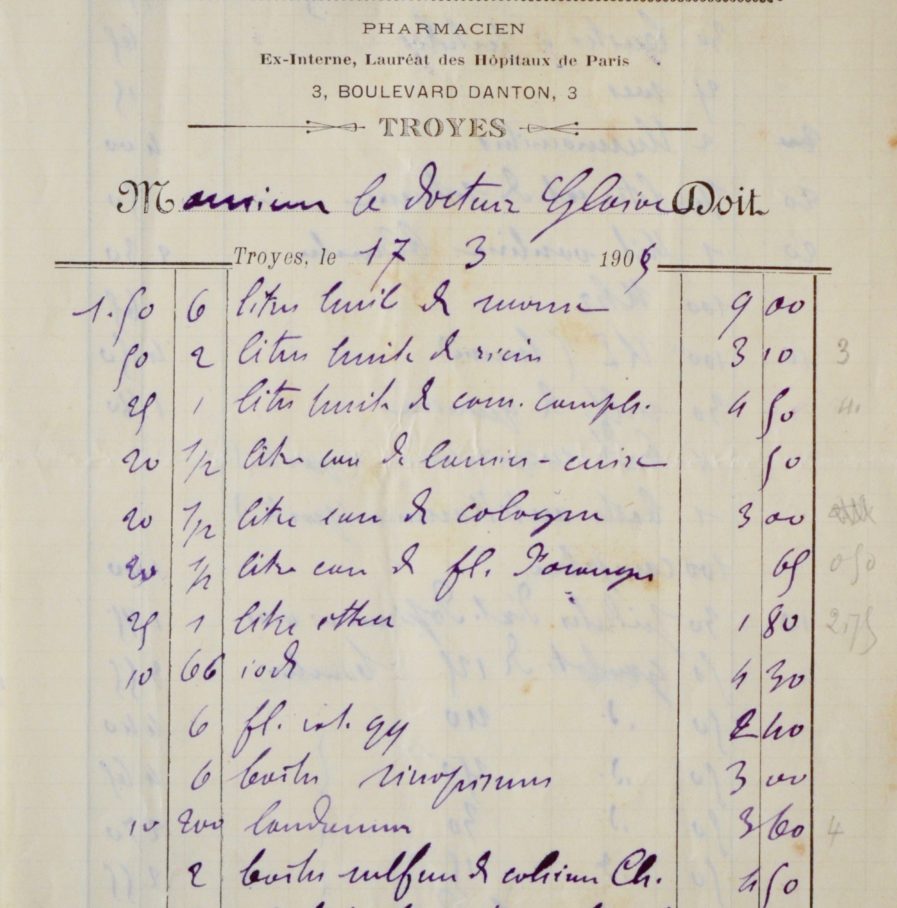 PHARMACIEN
Ex-Interne, Lauréat des Hôpitaux de Paris
3, BOULEVARD DANTON, 3
TROYES
Monsieur le docteur Doit
Troyes, le 17 3 190
1.50 6 litres huile de morue 9 00
50 2 litres huile de ricin 3 10 3
25 1 litre huile de cam. camph. 4 50 4.
20 1/2 litre eau de laurier-cerise 50
20 1/2 litre eau de cologne 3 00
20 1/2 litre eau de fl. d'oranger 65 0 50
25 1 litre ether 1 80 2.75
10 66 iode 4 30
6 fl. 2 40
6 boites sinapismes 3 00
10 200 laudanum 3 60 4
2 boites sulfure de calcium Ch. 4 50